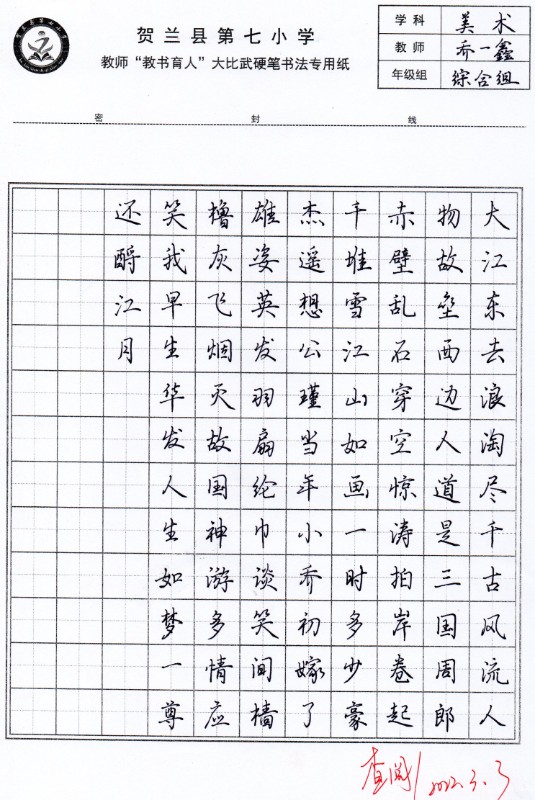 贺兰县第七小学
教师“教书育人”大比武硬笔书法专用纸
学科 美术
教师 乔一鑫
年级组 综合组
密 封 线
大江东去浪淘尽千古风流人
物故垒西边人道是三国周郎
赤壁乱石穿空惊涛拍岸卷起
千堆雪江山如画一时多少豪
杰遥想公瑾当年小乔初嫁了
雄姿英发羽扇纶巾谈笑间樯
橹灰飞烟灭故国神游多情应
笑我早生华发人生如梦一尊
还酹江月
查阅